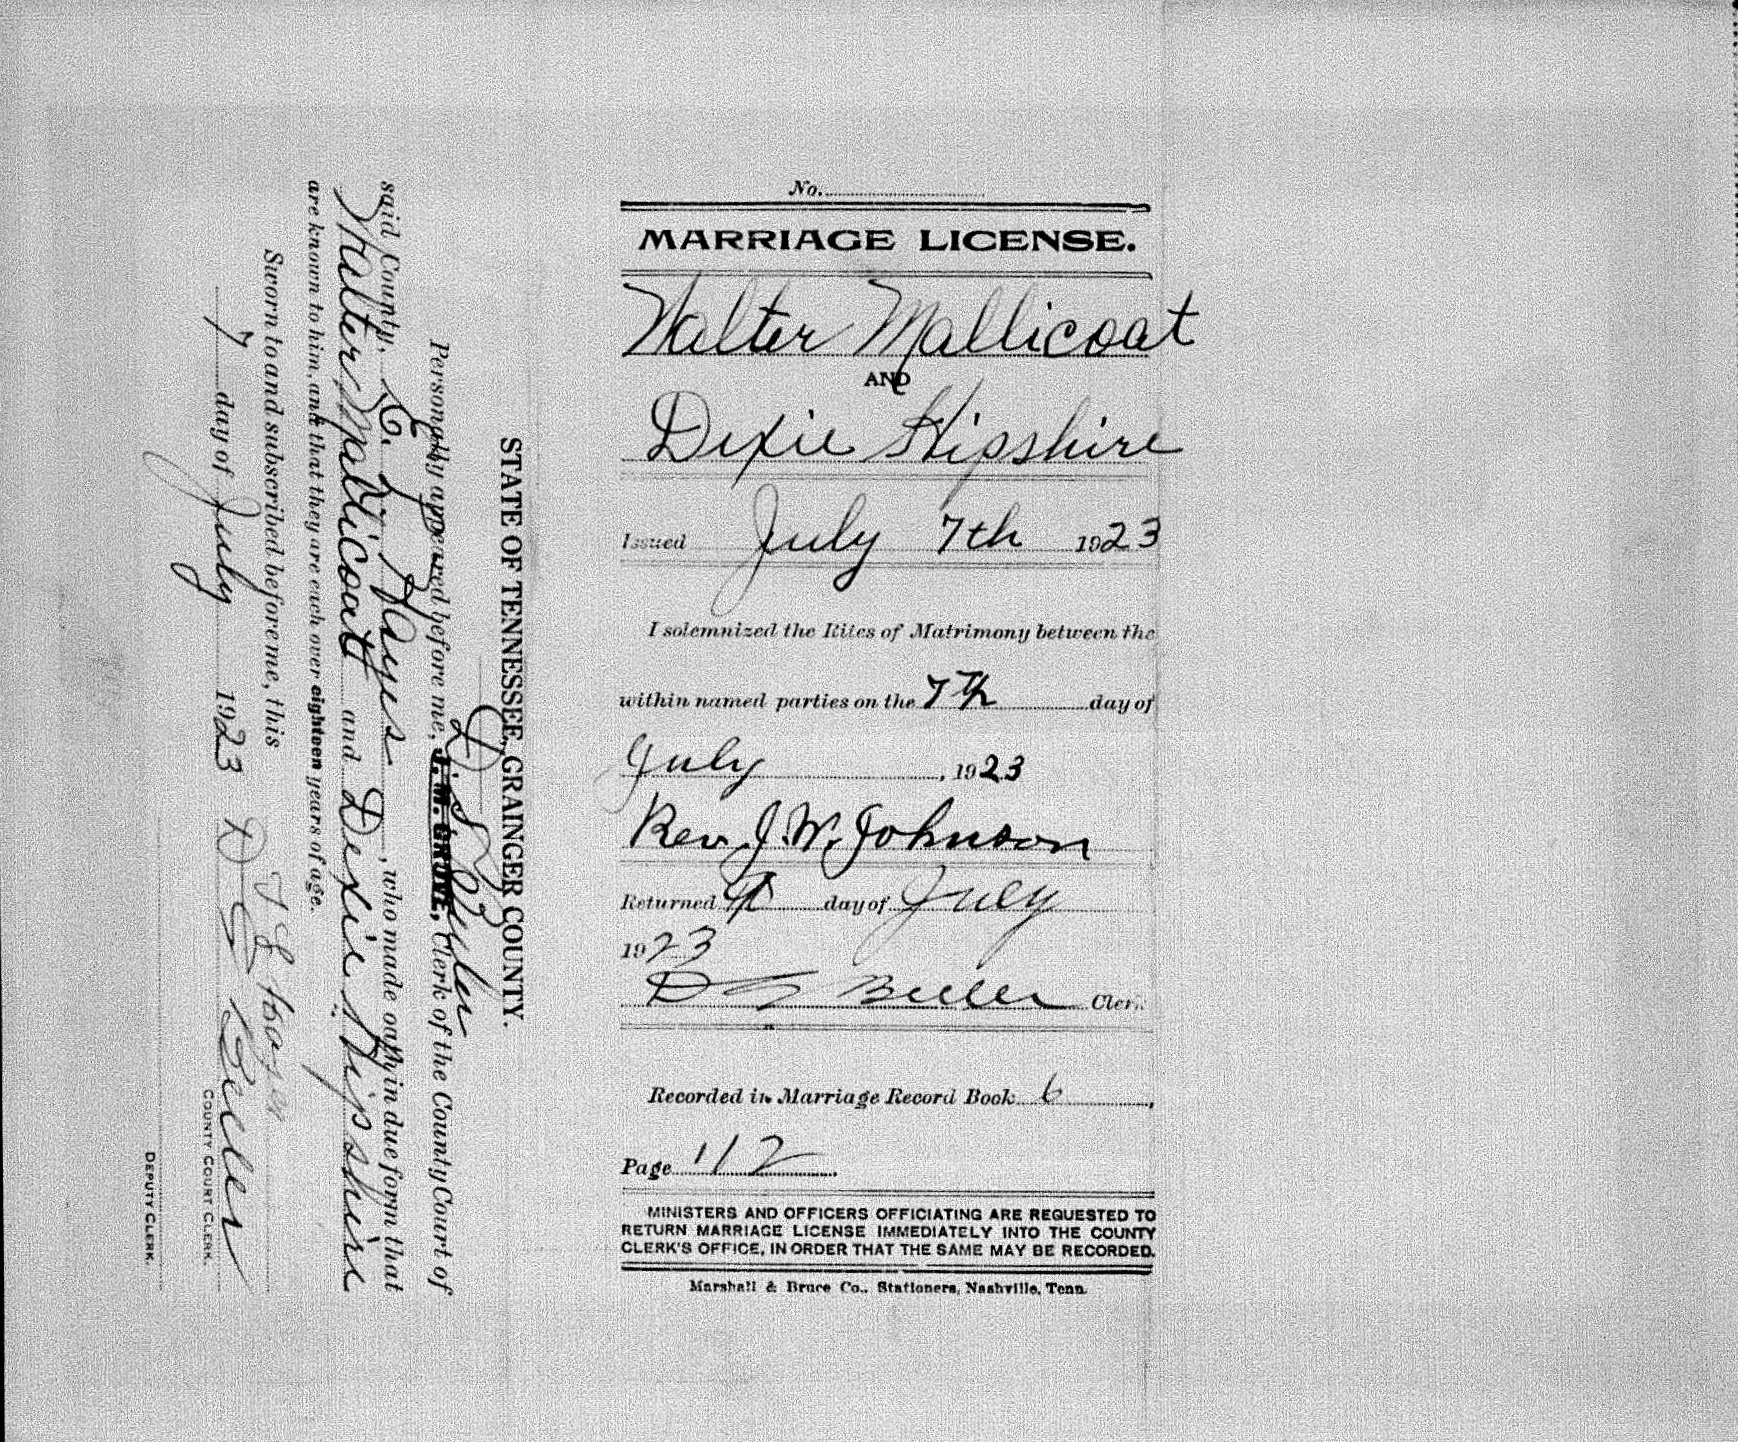 No.
MARRIAGE LICENSE.
Walter Mallicoat
AND
Dixie Hipshire
Issued July 7th 1923
I solemnized the Rites of Matrimony between the
within named parties on the 7th day of
July, 1923
Rev. J. W. Johnson
Returned 9 day of July
1923
D G Beeler Clerk
Recorded in Marriage Record Book 6,
Page 112.
MINISTERS AND OFFICERS OFFICIATING ARE REQUESTED TO
RETURN MARRIAGE LICENSE IMMEDIATELY INTO THE COUNTY
CLERK'S OFFICE, IN ORDER THAT THE SAME MAY BE RECORDED.
Marshall & Bruce Co., Stationers, Nashville, Tenn.
STATE OF TENNESSEE, GRAINGER COUNTY.
D. G. Beeler
Personally appeared before me, J. M. GROVE, Clerk of the County Court of
said County, Hayes, who made oath in due form that
Walter Mallicoat and Dixie Hipshire
are known to him, and that they are each over eighteen years of age.
Sworn to and subscribed before me, this
7 day of July 1923 D G Beeler
COUNTY COURT CLERK.
DEPUTY CLERK.